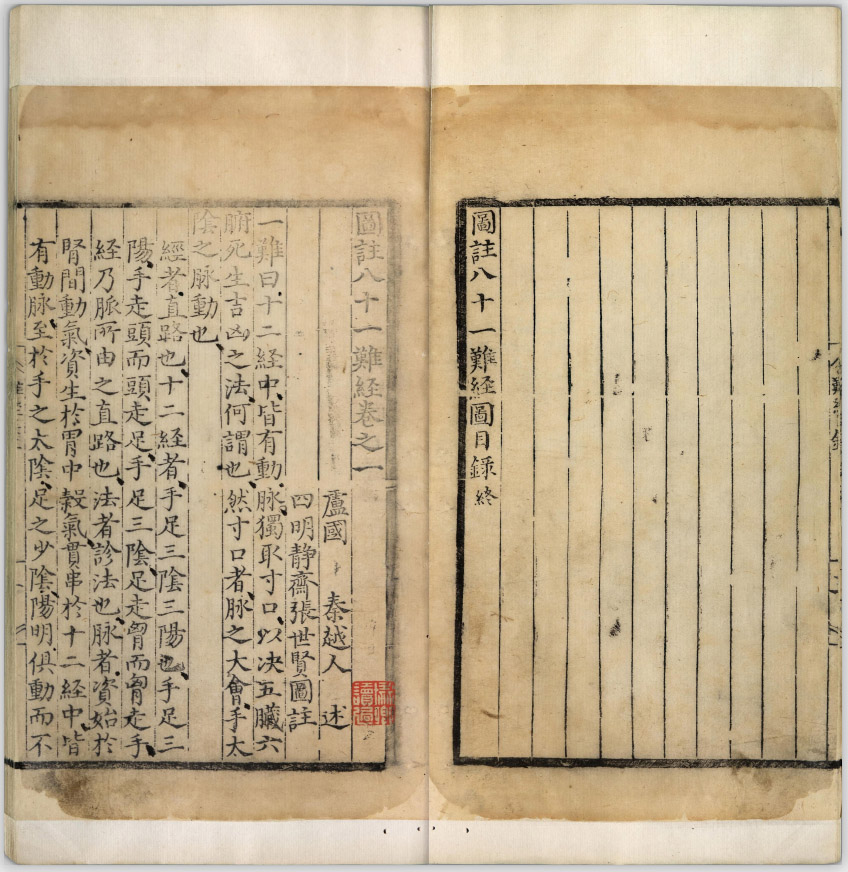 圖註八十一難經圖目錄終
圖註八十一難經卷之一
盧國 秦越人 述
四明靜齋張世賢圖註
一難曰十二經中皆有動脉獨取寸口以决五臟六
腑死生吉凶之法何謂也然寸口者脉之大會手太
陰之脉動也
經者直路也十二経者手足三陰三陽也手足三
陽手走頭而頭走足手足三陰足走胷而胷走手
経乃脈所由之直路也法者診法也脉者資始於
腎間動氣資生於胃中穀氣貫串於十二経中皆
有動脉至於手之太陰足之少陰陽明俱動而不